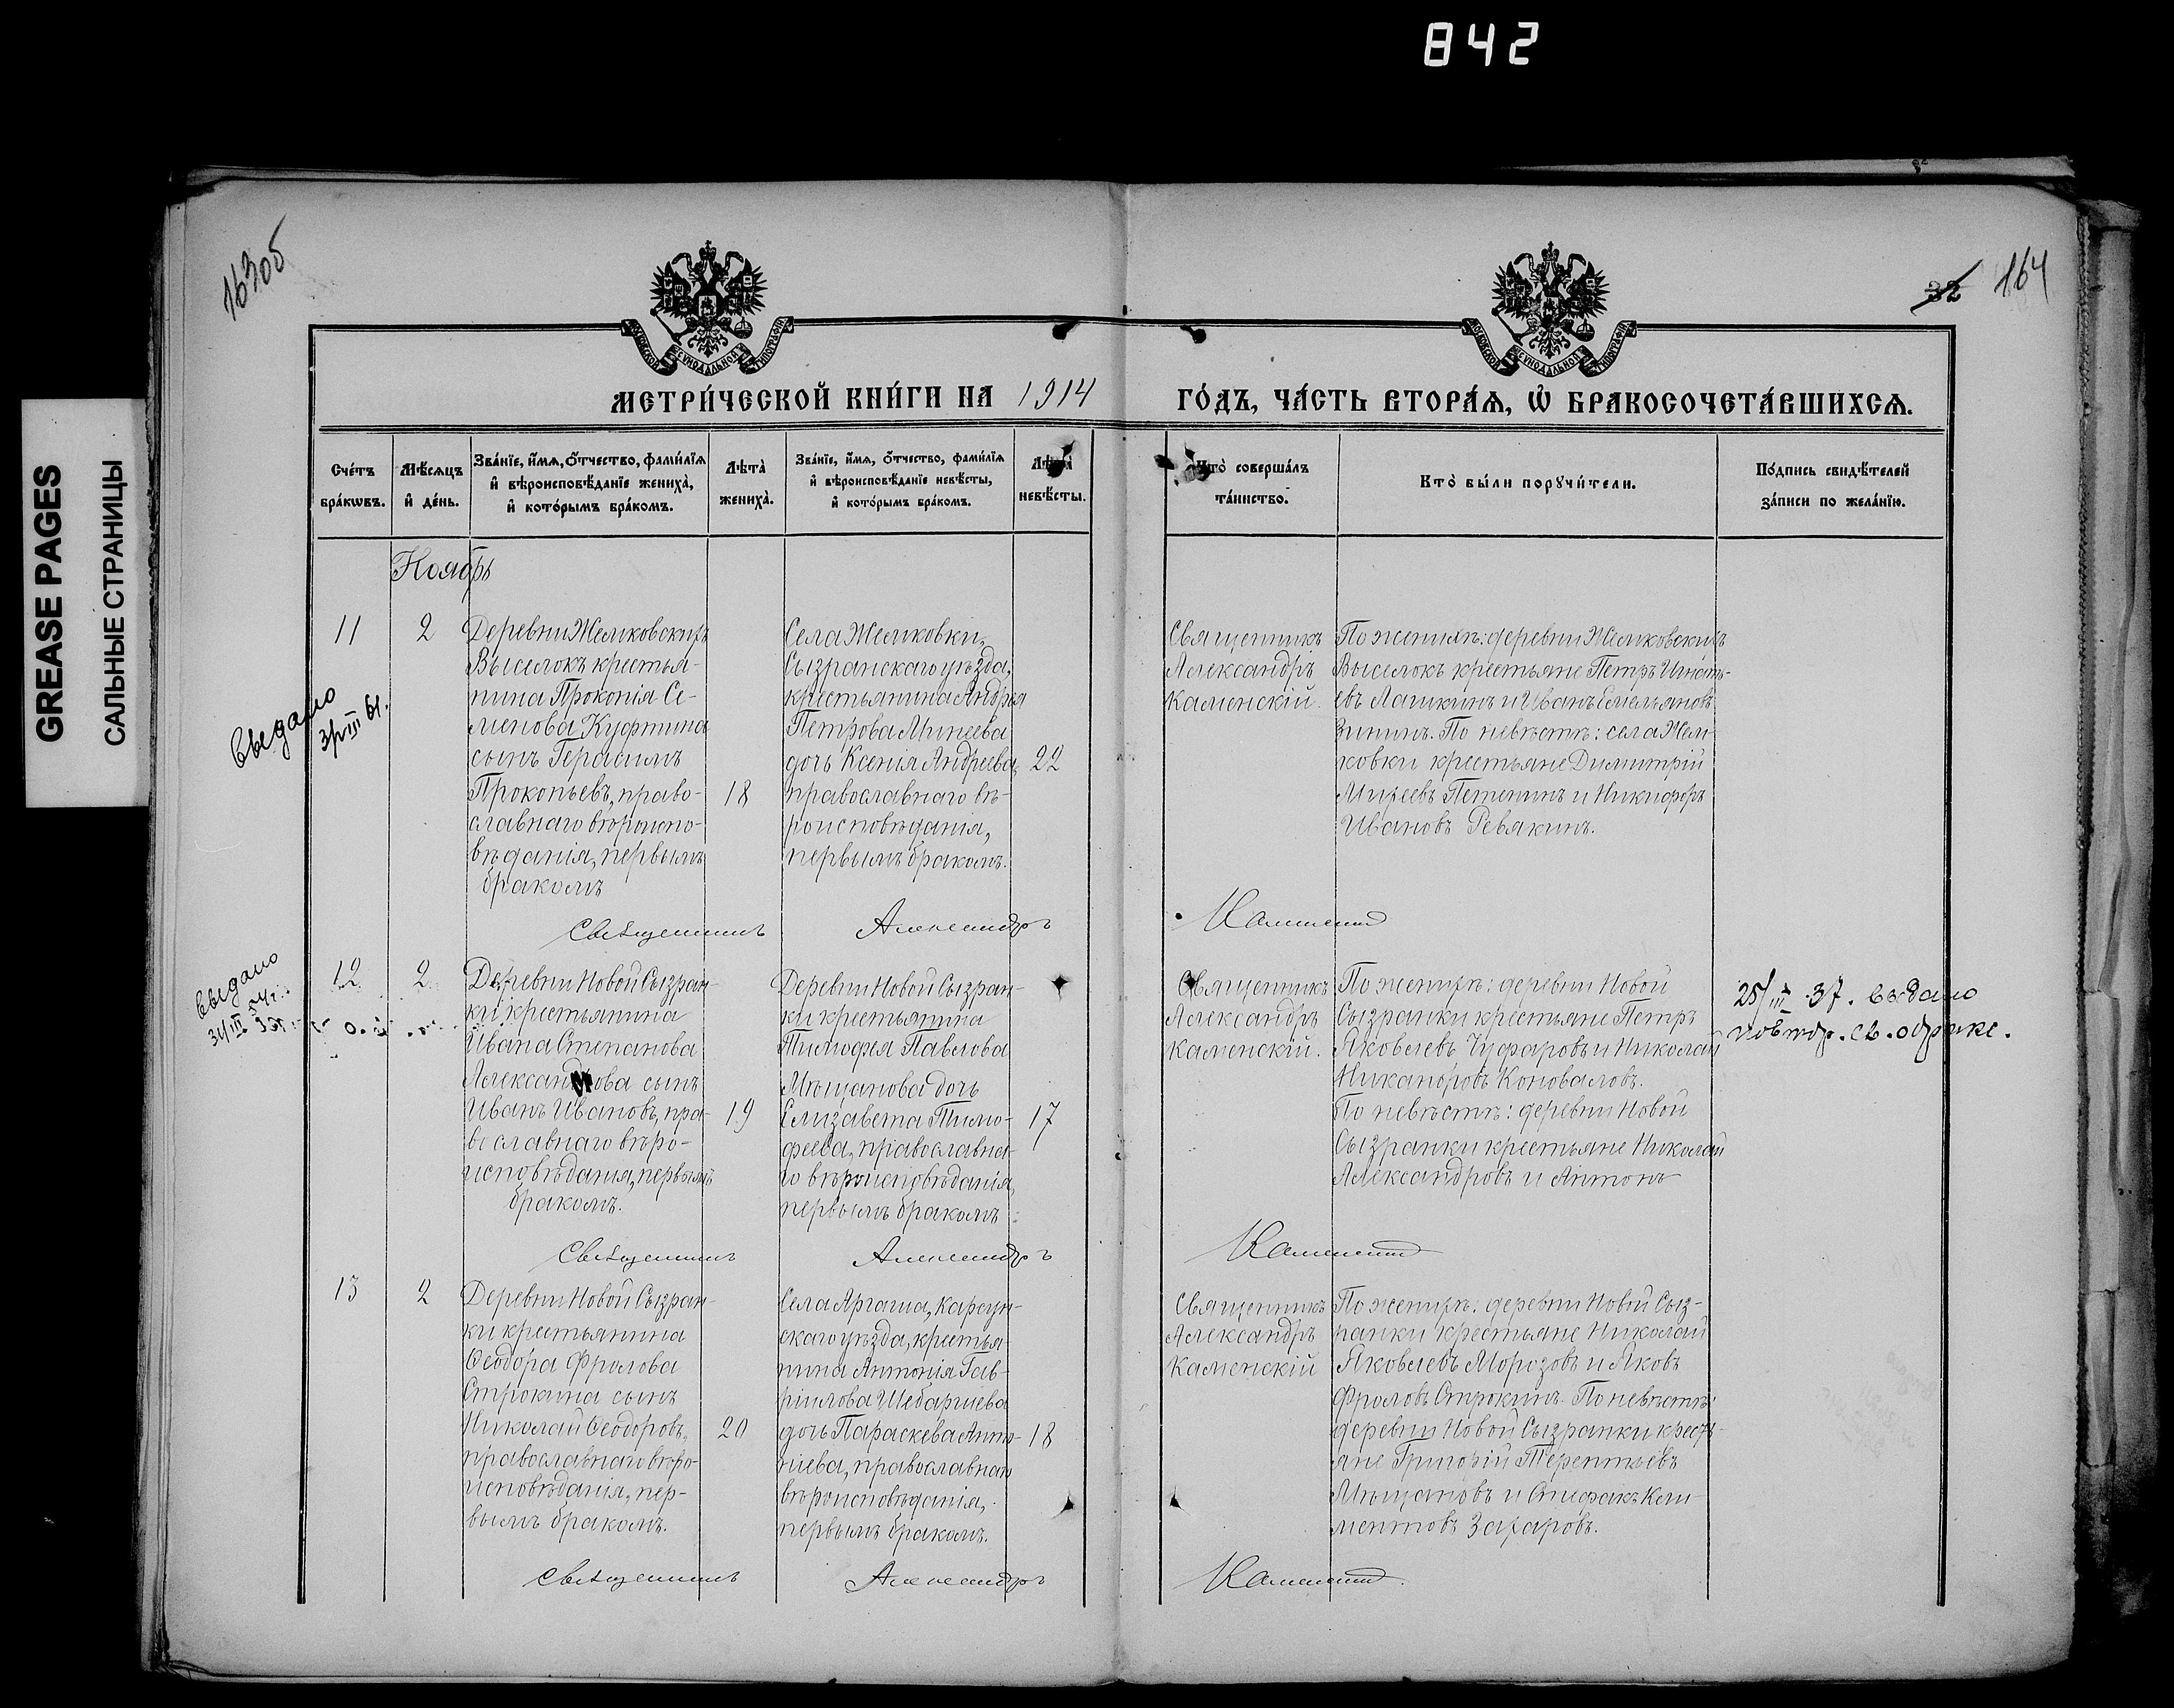 842
GREASE PAGES
САЛЬНЫЕ СТРАНИЦЫ
163об
32 164
МОСКОВСКОЙ СѴНОДАЛЬНОЙ ТИПОГРАФІИ
МОСКОВСКОЙ СѴНОДАЛЬНОЙ ТИПОГРАФІИ
МЕТРИ́ЧЕСКОЙ КНИ́ГИ НА 1914
ГО́ДЪ, ЧА́СТЬ ВТОРА́Я, Ѡ БРАКОСОЧЕТА́ВШИХСЯ.
Сче́тъ
бра́кѡвъ.
Мѣ́сяцъ
и де́нь.
Зва́нїе, и́мя, о́тчество, фами́лїя
и вѣроисповѣ́данїе жениха̀,
и кото́рымъ бра́комъ.
Лѣта̀
жениха̀.
Зва́нїе, и́мя, о́тчество, фами́лїя
и вѣроисповѣ́данїе невѣ́сты,
и кото́рымъ бра́комъ.
Лѣта̀
невѣ́сты.
Кто̀ соверша́лъ
та́инство.
Кто̀ бы́ли порꙋчи́тели.
По́дпись свидѣ́телей
за́писи по жела́нїю.
Ноябрь
11
2
Деревни Жемковскихъ
Выселокъ крестья-
нина Прокопія Се-
менова Куфтина
сынъ Герасимъ
Прокопьевъ, право-
славнаго вѣроиспо-
вѣданія, первымъ
бракомъ
18
Села Жемковки,
Сызранскаго уѣзда,
крестьянина Андрея
Петрова Минеева
дочь Ксенія Андреева,
православнаго вѣ-
роисповѣданія,
первымъ бракомъ.
22
Священникъ
Александръ
Каменскій.
По женихѣ: деревни Жемковскихъ
Выселокъ крестьяне Петръ Игнать-
евъ Лашкинъ и Иванъ Емельяновъ
Зининъ. По невѣстѣ: села Жем-
ковки крестьяне Димитрій
Михеевъ Петенинъ и Никифоръ
Ивановъ Ревякинъ.
выдано
Священникъ Александръ Каменскій
выдано
12
2
Деревни Новой Сызран-
ки крестьянина
Ивана Степанова
Александрова сынъ
Иванъ Ивановъ, пра-
вославнаго вѣро-
исповѣданія, первымъ
бракомъ.
19
Деревни Новой Сызран-
ки крестьянина
Тимофея Павлова
Мѣщанова дочь
Елизавета Тимо-
феева, православна-
го вѣроисповѣданія,
первымъ бракомъ
17
Священникъ
Александръ
Каменскій.
По женихѣ: деревни Новой
Сызранки крестьяне Петръ
Яковлевъ Чуфаровъ и Николай
Никаноровъ Коноваловъ.
По невѣстѣ: деревни Новой
Сызранки крестьяне Николай
Александровъ и Антонъ
25/III 37. выдано
повтор. св. о браке.
Священникъ Александръ Каменскій
13
2
Деревни Новой Сызран-
ки крестьянина
Ѳеодора Фролова
Строкина сынъ
Николай Ѳеодоровъ,
православнаго вѣро-
исповѣданія, пер-
вымъ бракомъ.
20
Села Аргаша, Карсун-
скаго уѣзда, крестья-
нина Антонія Гав-
ріилова Шебаршева
дочь Параскева Анто-
ніева, православнаго
вѣроисповѣданія,
первымъ бракомъ.
18
Священникъ
Александръ
Каменскій
По женихѣ: деревни Новой Сыз-
ранки крестьяне Николай
Яковлевъ Морозовъ и Яковъ
Фроловъ Строкинъ. По невѣстѣ:
деревни Новой Сызранки кресть-
яне Григорій Терентьевъ
Мѣщановъ и Стефанъ Кли-
ментовъ Захаровъ.
Священникъ Александръ Каменскій